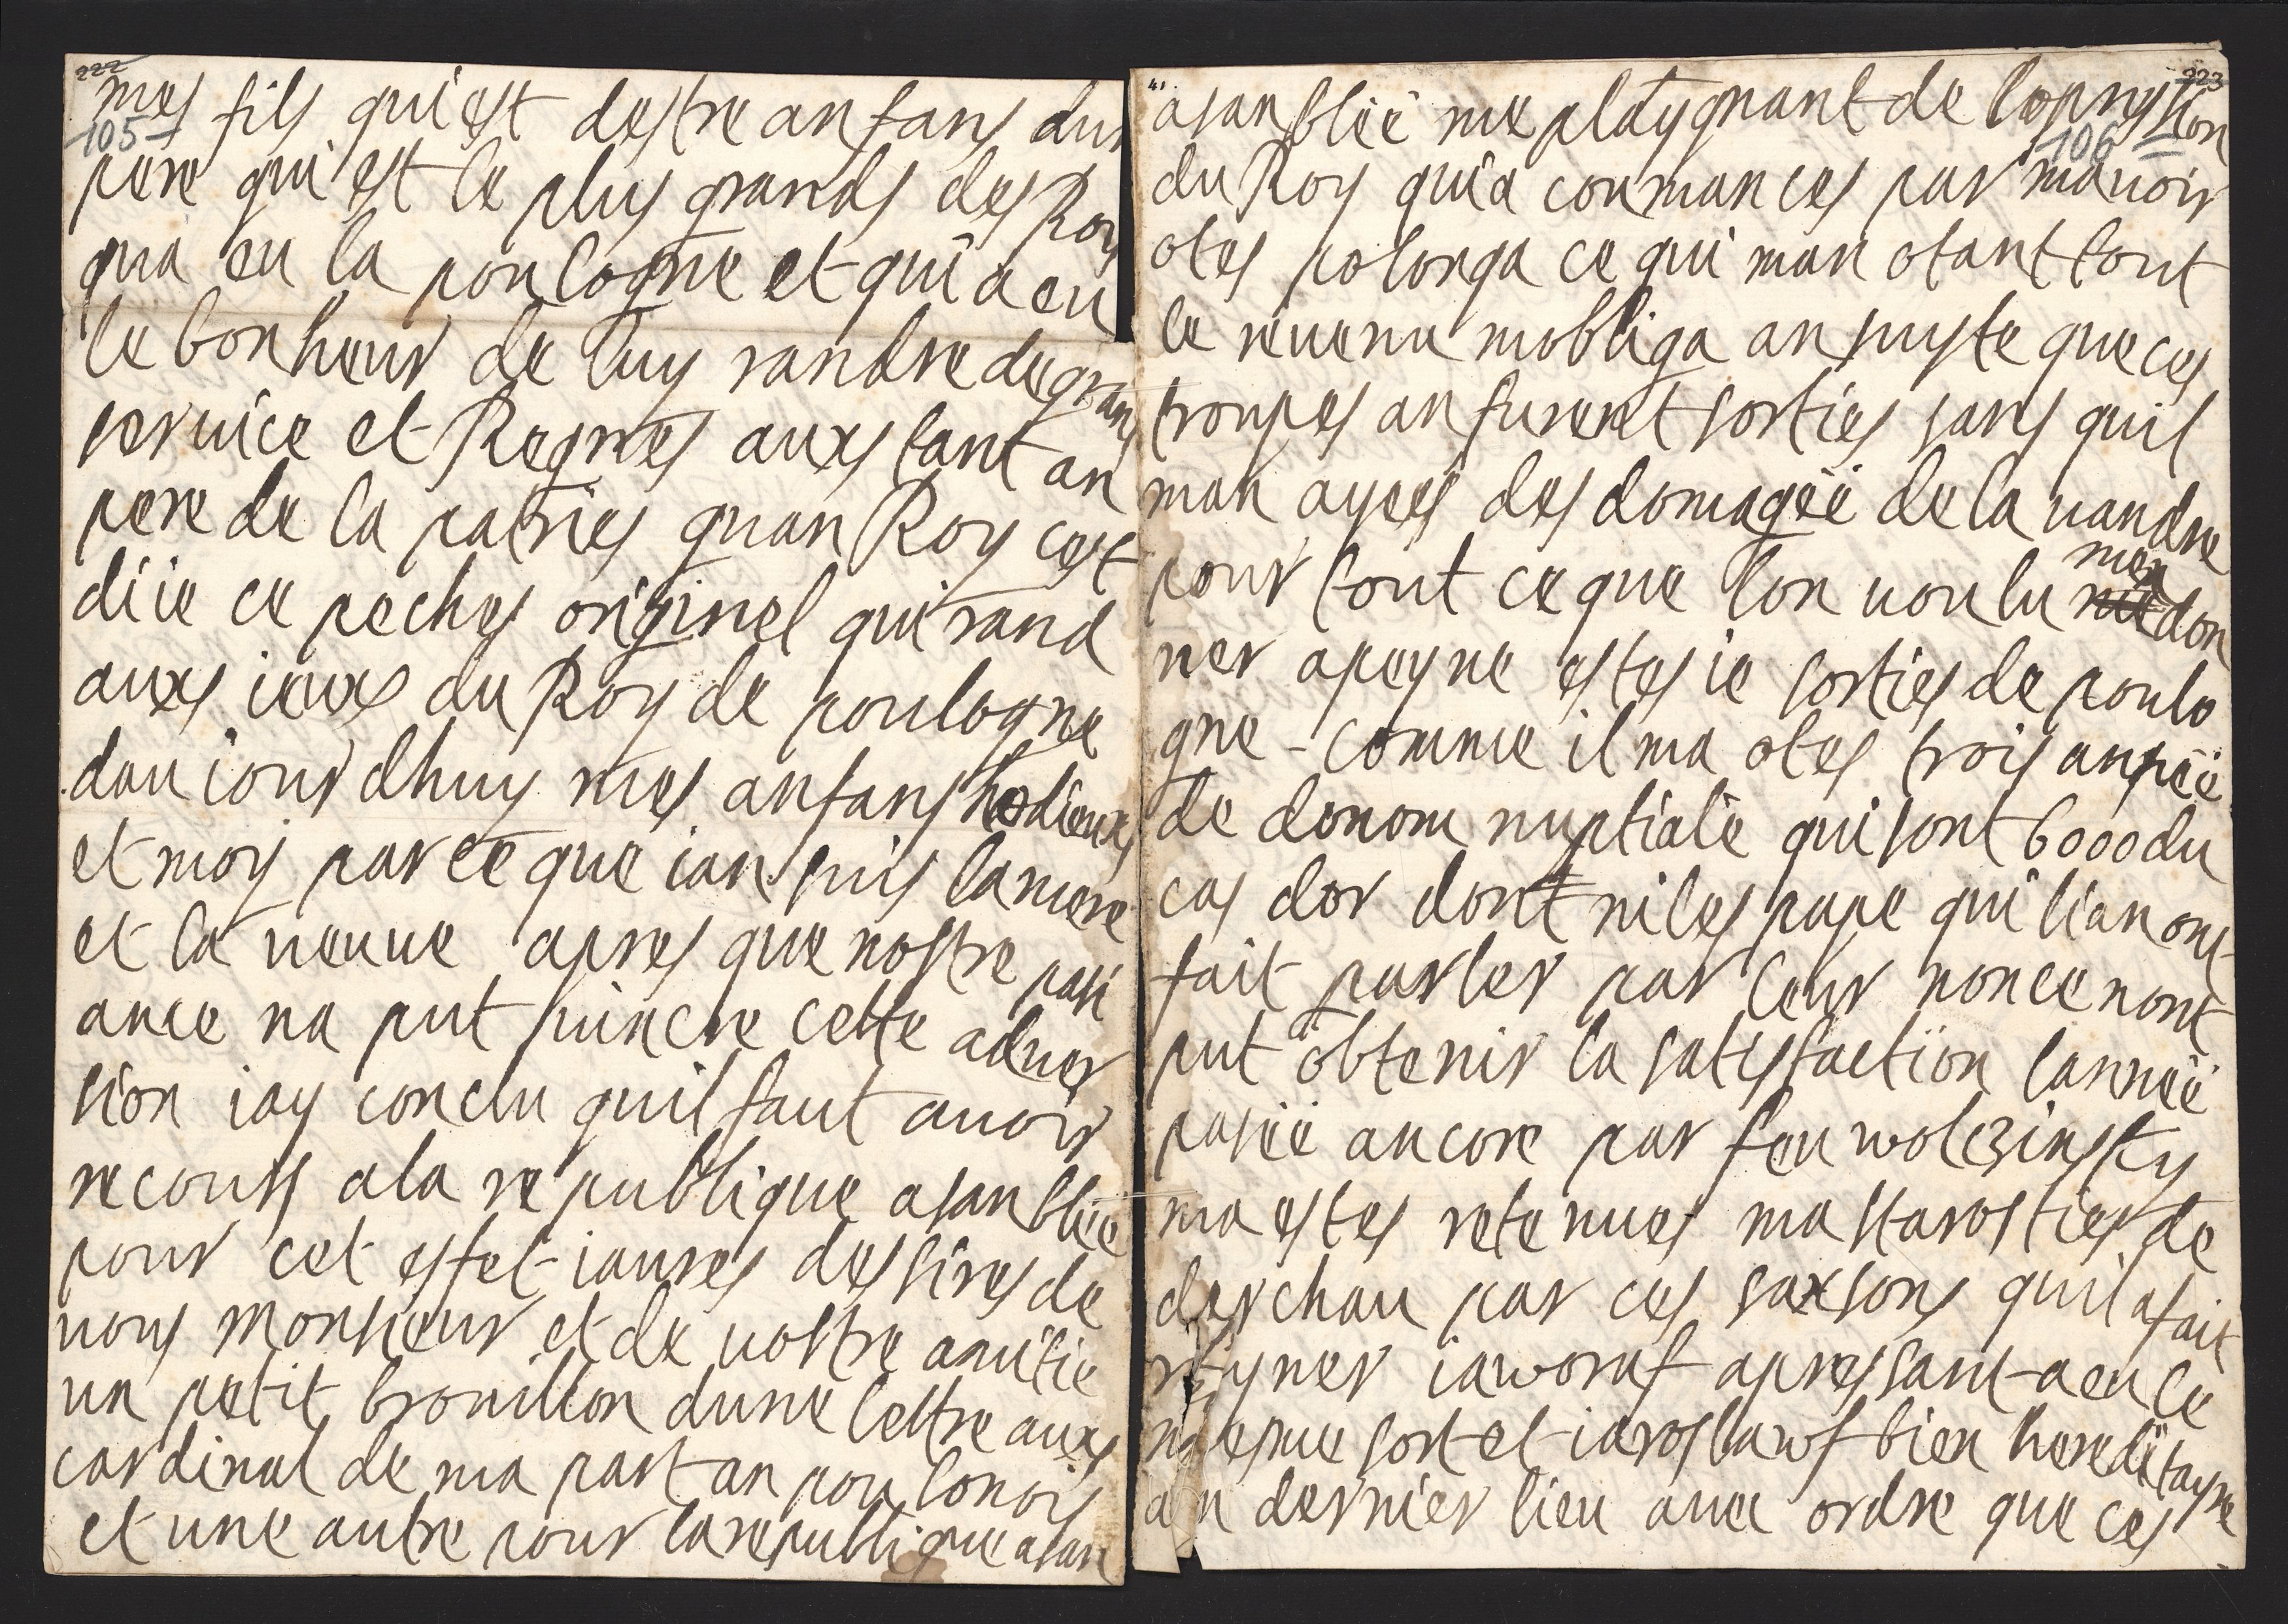 222
105
mes fils qui est destre anfans dun
pere qui est le plus grands des Roy
qua eu la poulogne et qui a eu
le bonheur de luy randre de grans
service et Regnes auxs tant an
pere de la patries quan Roy cest
diie ce peches originel qui rand
auxs ieux du Roy de poulogne
dau iour dhuy mes anfans hodieuxs
et moy parce que ian suis la mere
et la veuve apres que nostre pasi
ance na put vincre cette adver
sion iay conclu quil faut avoir
recours a la republique asanblëe
pour cet esfet iaures desires de
vous Monsieur et de vostre amitie
un petit brouillon dune lettre auxs
cardinal de ma part an poulonois
et une autre pour la republique asan
223
106
asanblëe me playgnant de lopresion
du Roy qui a commances par mavoir
otes polonga ce qui man otant tout
le revenu mobliga ansuyste que ces
troupes an furent sorties sans quil
man ayees desdomagëe de la vandre
pour tout ce que lon voulu men don
ner apeyne estes ie sorties de poulo
gne - comme il ma otes trois annëe
de donom nuptiale qui sont 6000 du
cas dor dont ni les pape qui lian ont
fait parler par leur nonce nont
put obtenir la satisfaction lannëe
pasëe ancore par feu wolczinsky
ma estes retenues ma starosties de
derchau par ces saxsons quil a fait
ruyner iaworuf apressant a eu le
mesme sort et iaroslawf bien hereditayre
an dernier lieu avec ordre que ces